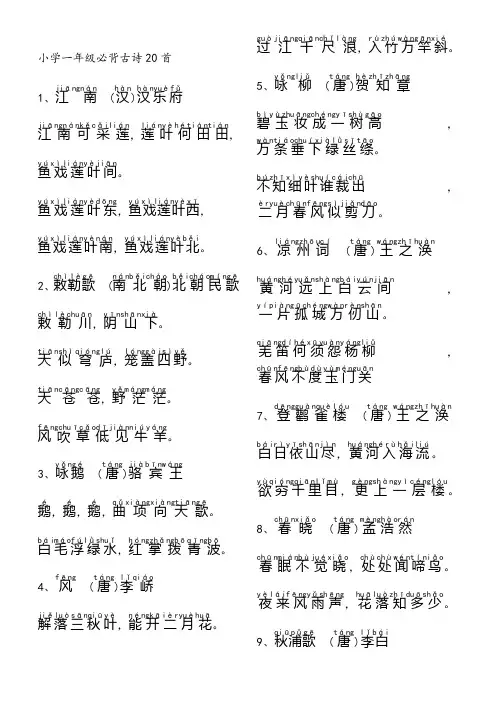 小学一年级必背古诗20首
jiāngnán hàn hànyuèfǔ
1、江 南 (汉)汉乐府
jiāngnánkěcǎilián liányèhétiántián
江南可采莲,莲叶何田田,
yúxìliányèjiān
鱼戏莲叶间。
yúxìliányèdōng yúxìliányèxī
鱼戏莲叶东,鱼戏莲叶西,
yúxìliányènán yúxìliányèběi
鱼戏莲叶南,鱼戏莲叶北。
chìlègē nánběicháo běicháomíngē
2、敕勒歌 (南北朝)北朝民歌
chìlèchuān yīnshānxià
敕勒川,阴山下。
tiānsìqiónglú lónggàisìyě
天似穹庐,笼盖四野。
tiāncāngcāng yěmángmáng
天苍苍,野茫茫。
fēngchuīcǎodījiànniúyáng
风吹草低见牛羊。
yǒngé táng jiàbīnwáng
3、咏鹅 (唐)骆宾王
é é é qǔxiàngxiàngtiāngē
鹅,鹅,鹅,曲项向天歌。
báimáofúlǜshuǐ hóngzhǎngbōqīngbō
白毛浮绿水,红掌拨青波。
fēng táng lǐqiáo
4、风 (唐)李峤
jiěluòsānqiūyè néngkāièryuèhuā
解落三秋叶,能开二月花。
guòjiāngqiānchǐlàng rùzhúwàngānxié
过江千尺浪,入竹万竿斜。
yǒngliǔ táng hèzhīzhāng
5、咏柳 (唐)贺知章
bìyùzhuāngchéngyīshùgāo
碧玉妆成一树高,
wàntiáochuíxiàlǜsītāo
万条垂下绿丝绦。
bùzhīxìyèshuícáichū
不知细叶谁裁出,
èryuèchūnfēngsìjiǎndāo
二月春风似剪刀。
liángzhōucí táng wángzhīhuàn
6、凉州词 (唐)王之涣
huánghéyuǎnshàngbáiyúnjiān
黄河远上白云间,
yīpiàngūchéngwànrènshān
一片孤城万仞山。
qiāngdíhéxūyuànyángliǔ
羌笛何须怨杨柳,
chūnfēngbùdùyùménguān
春风不度玉门关
dēngguànquèlóu táng wángzhīhuàn
7、登鹳雀楼 (唐)王之涣
báirìyīshānjìn huánghérùhǎiliú
白日依山尽,黄河入海流。
yùqióngqiānlǐmù gèngshàngyīcénglóu
欲穷千里目,更上一层楼。
chūnxiǎo táng mènghàorán
8、春晓 (唐)孟浩然
chūnmiánbùjuéxiǎo chùchùwéntíniǎo
春眠不觉晓,处处闻啼鸟。
yèláifēngyǔshēng huāluòzhīduōshǎo
夜来风雨声,花落知多少。
qiūpǔgē táng lǐbái
9、秋浦歌 (唐)李白